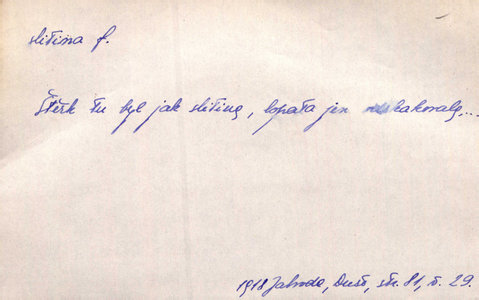 slitina f.
Štěrk tu byl jak slitina, lopata jen odskakovala...
1918 Jahoda, Dušt, str. 81, ř. 29.